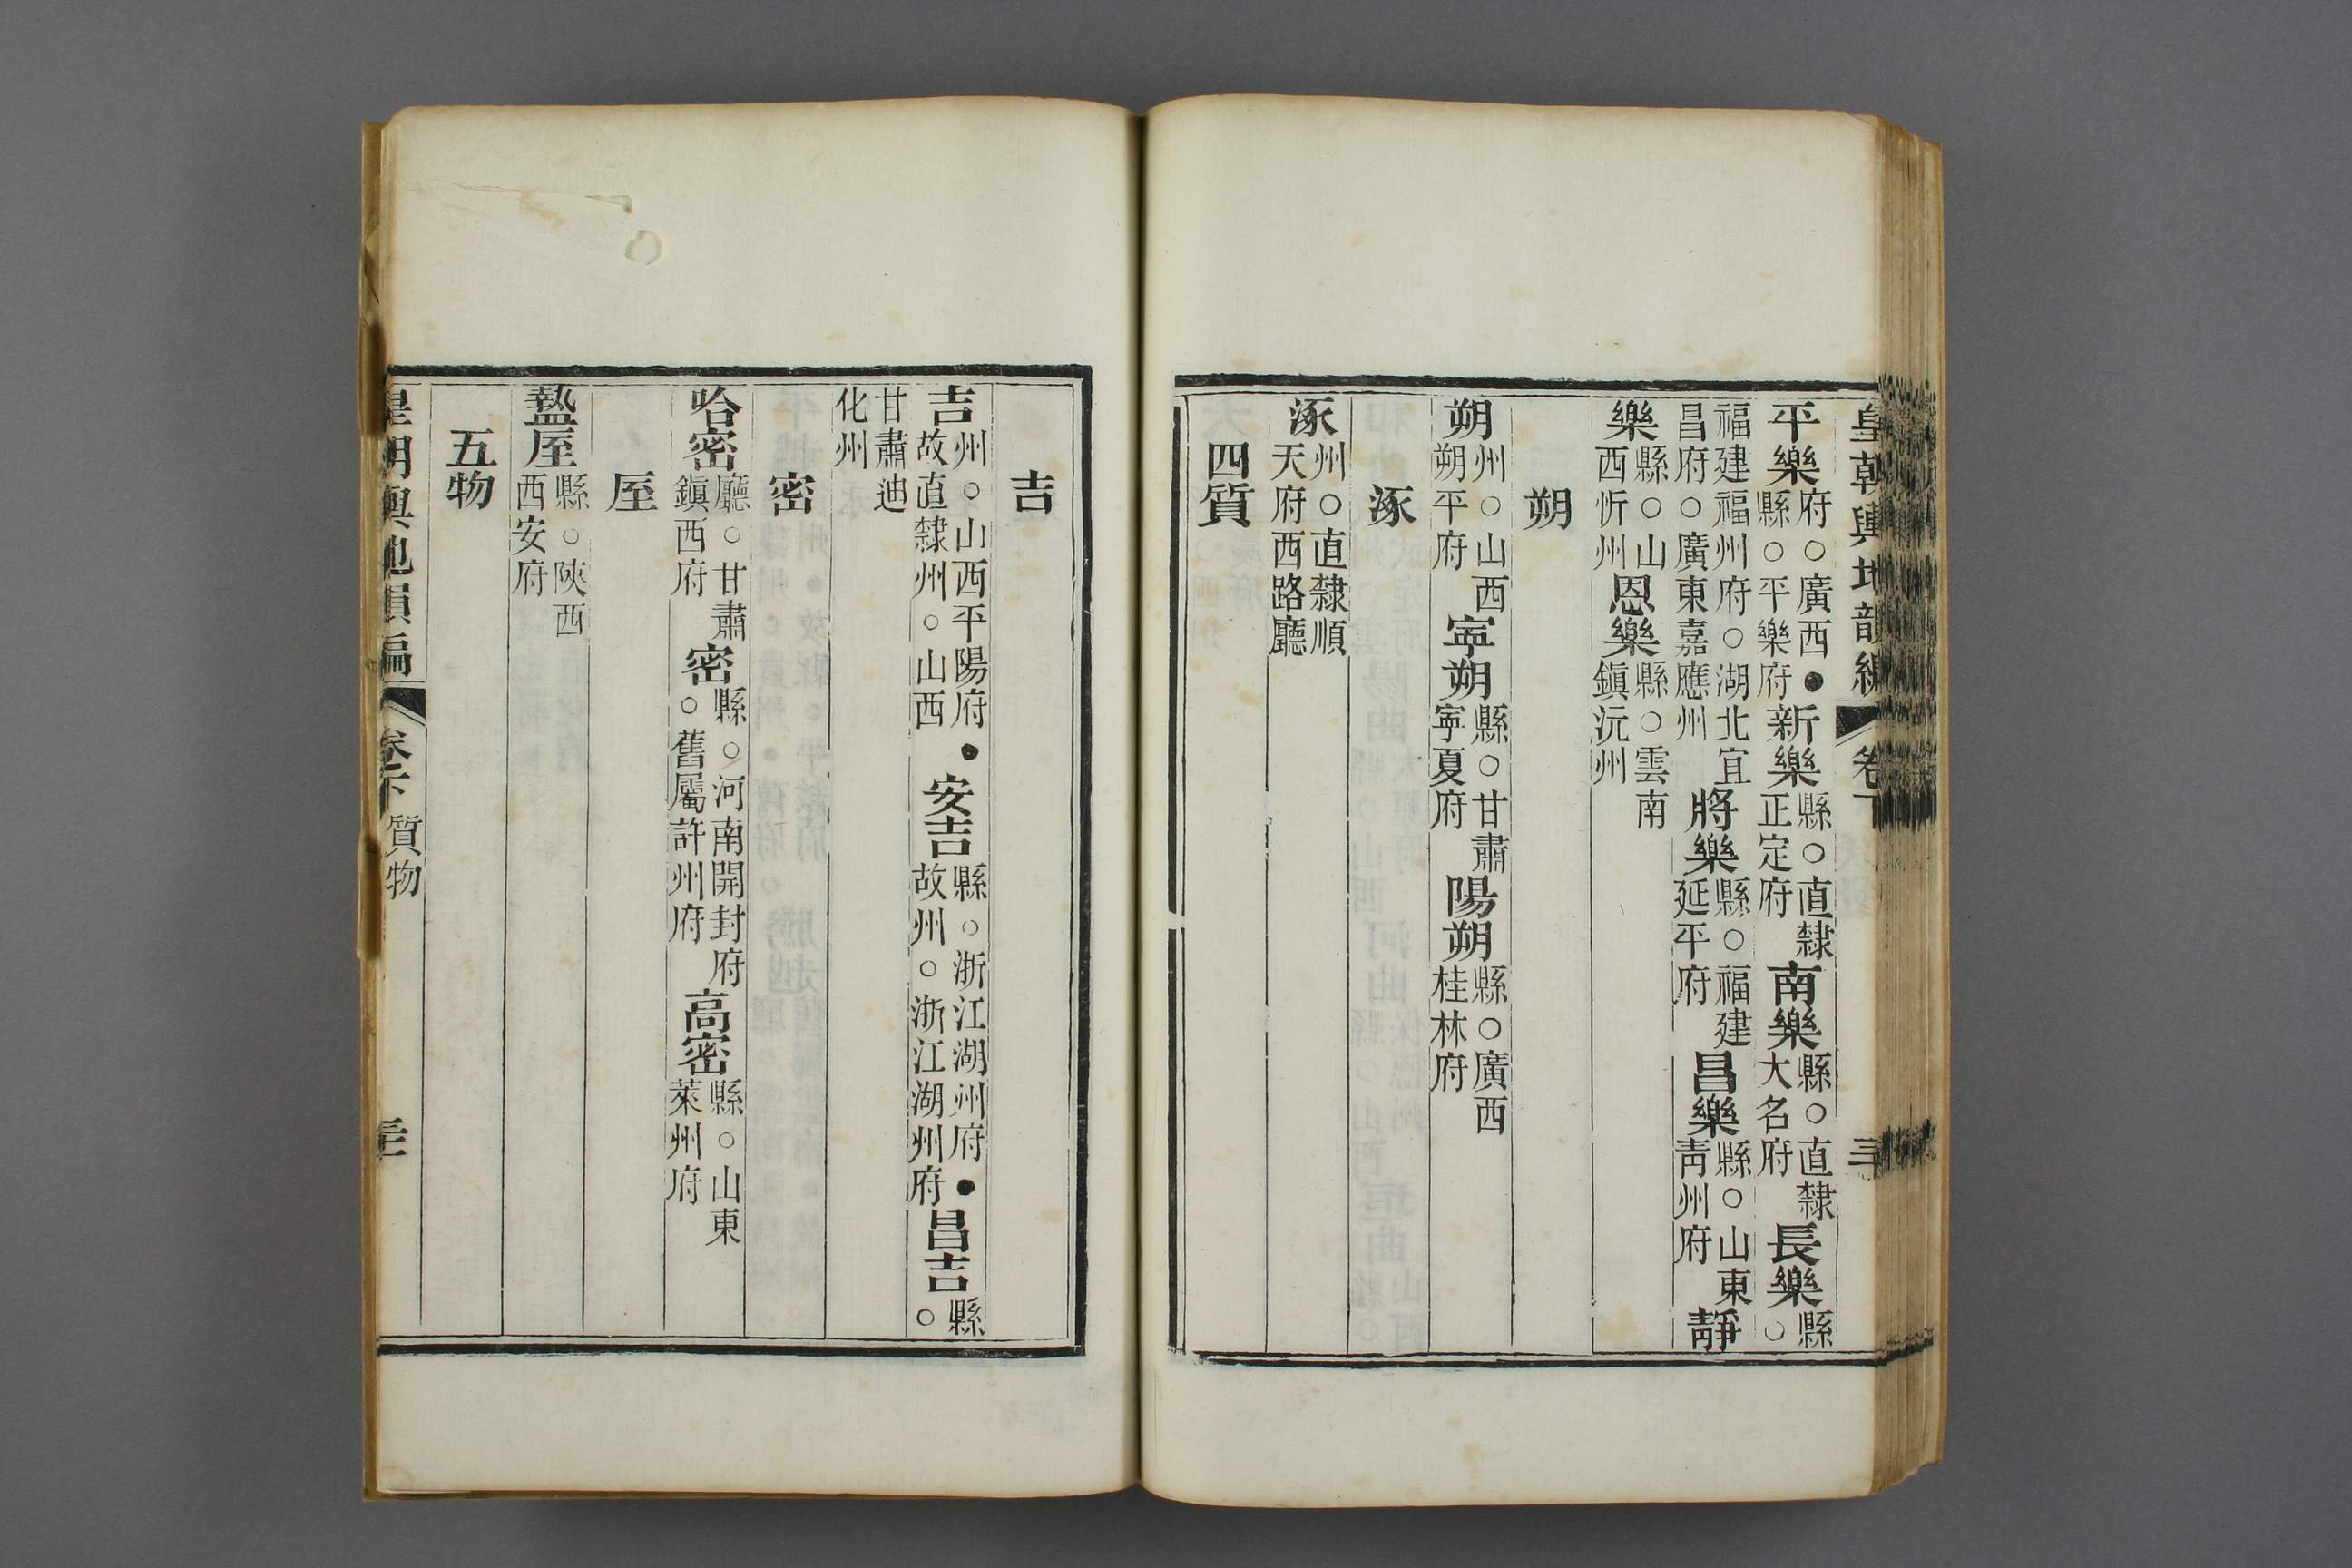 皇朝輿地韻編 卷下 三十
平樂府○廣西●縣○平樂府 新樂縣○直隸正定府 南樂縣○直隸大名府 長樂縣○
福建福州府○湖北宜昌府○廣東嘉應州 將樂縣○福建延平府 昌樂縣○山東青州府 靜
樂縣○山西忻州 恩樂縣○雲南鎮沅州
朔
朔州○山西朔平府 寧朔縣○甘肅寧夏府 陽朔縣○廣西桂林府
涿
涿州○直隸順天府西路廳
四質
吉
吉州○山西平陽府●故直隸州○山西 安吉縣○浙江湖州府●故州○浙江湖州府 昌吉縣○
甘肅迪化州
密
哈密廳○甘肅鎮西府 密縣○河南開封府○舊屬許州府 高密縣○山東萊州府
厔
盩厔縣○陝西西安府
五物
皇朝輿地韻編 卷下 質物